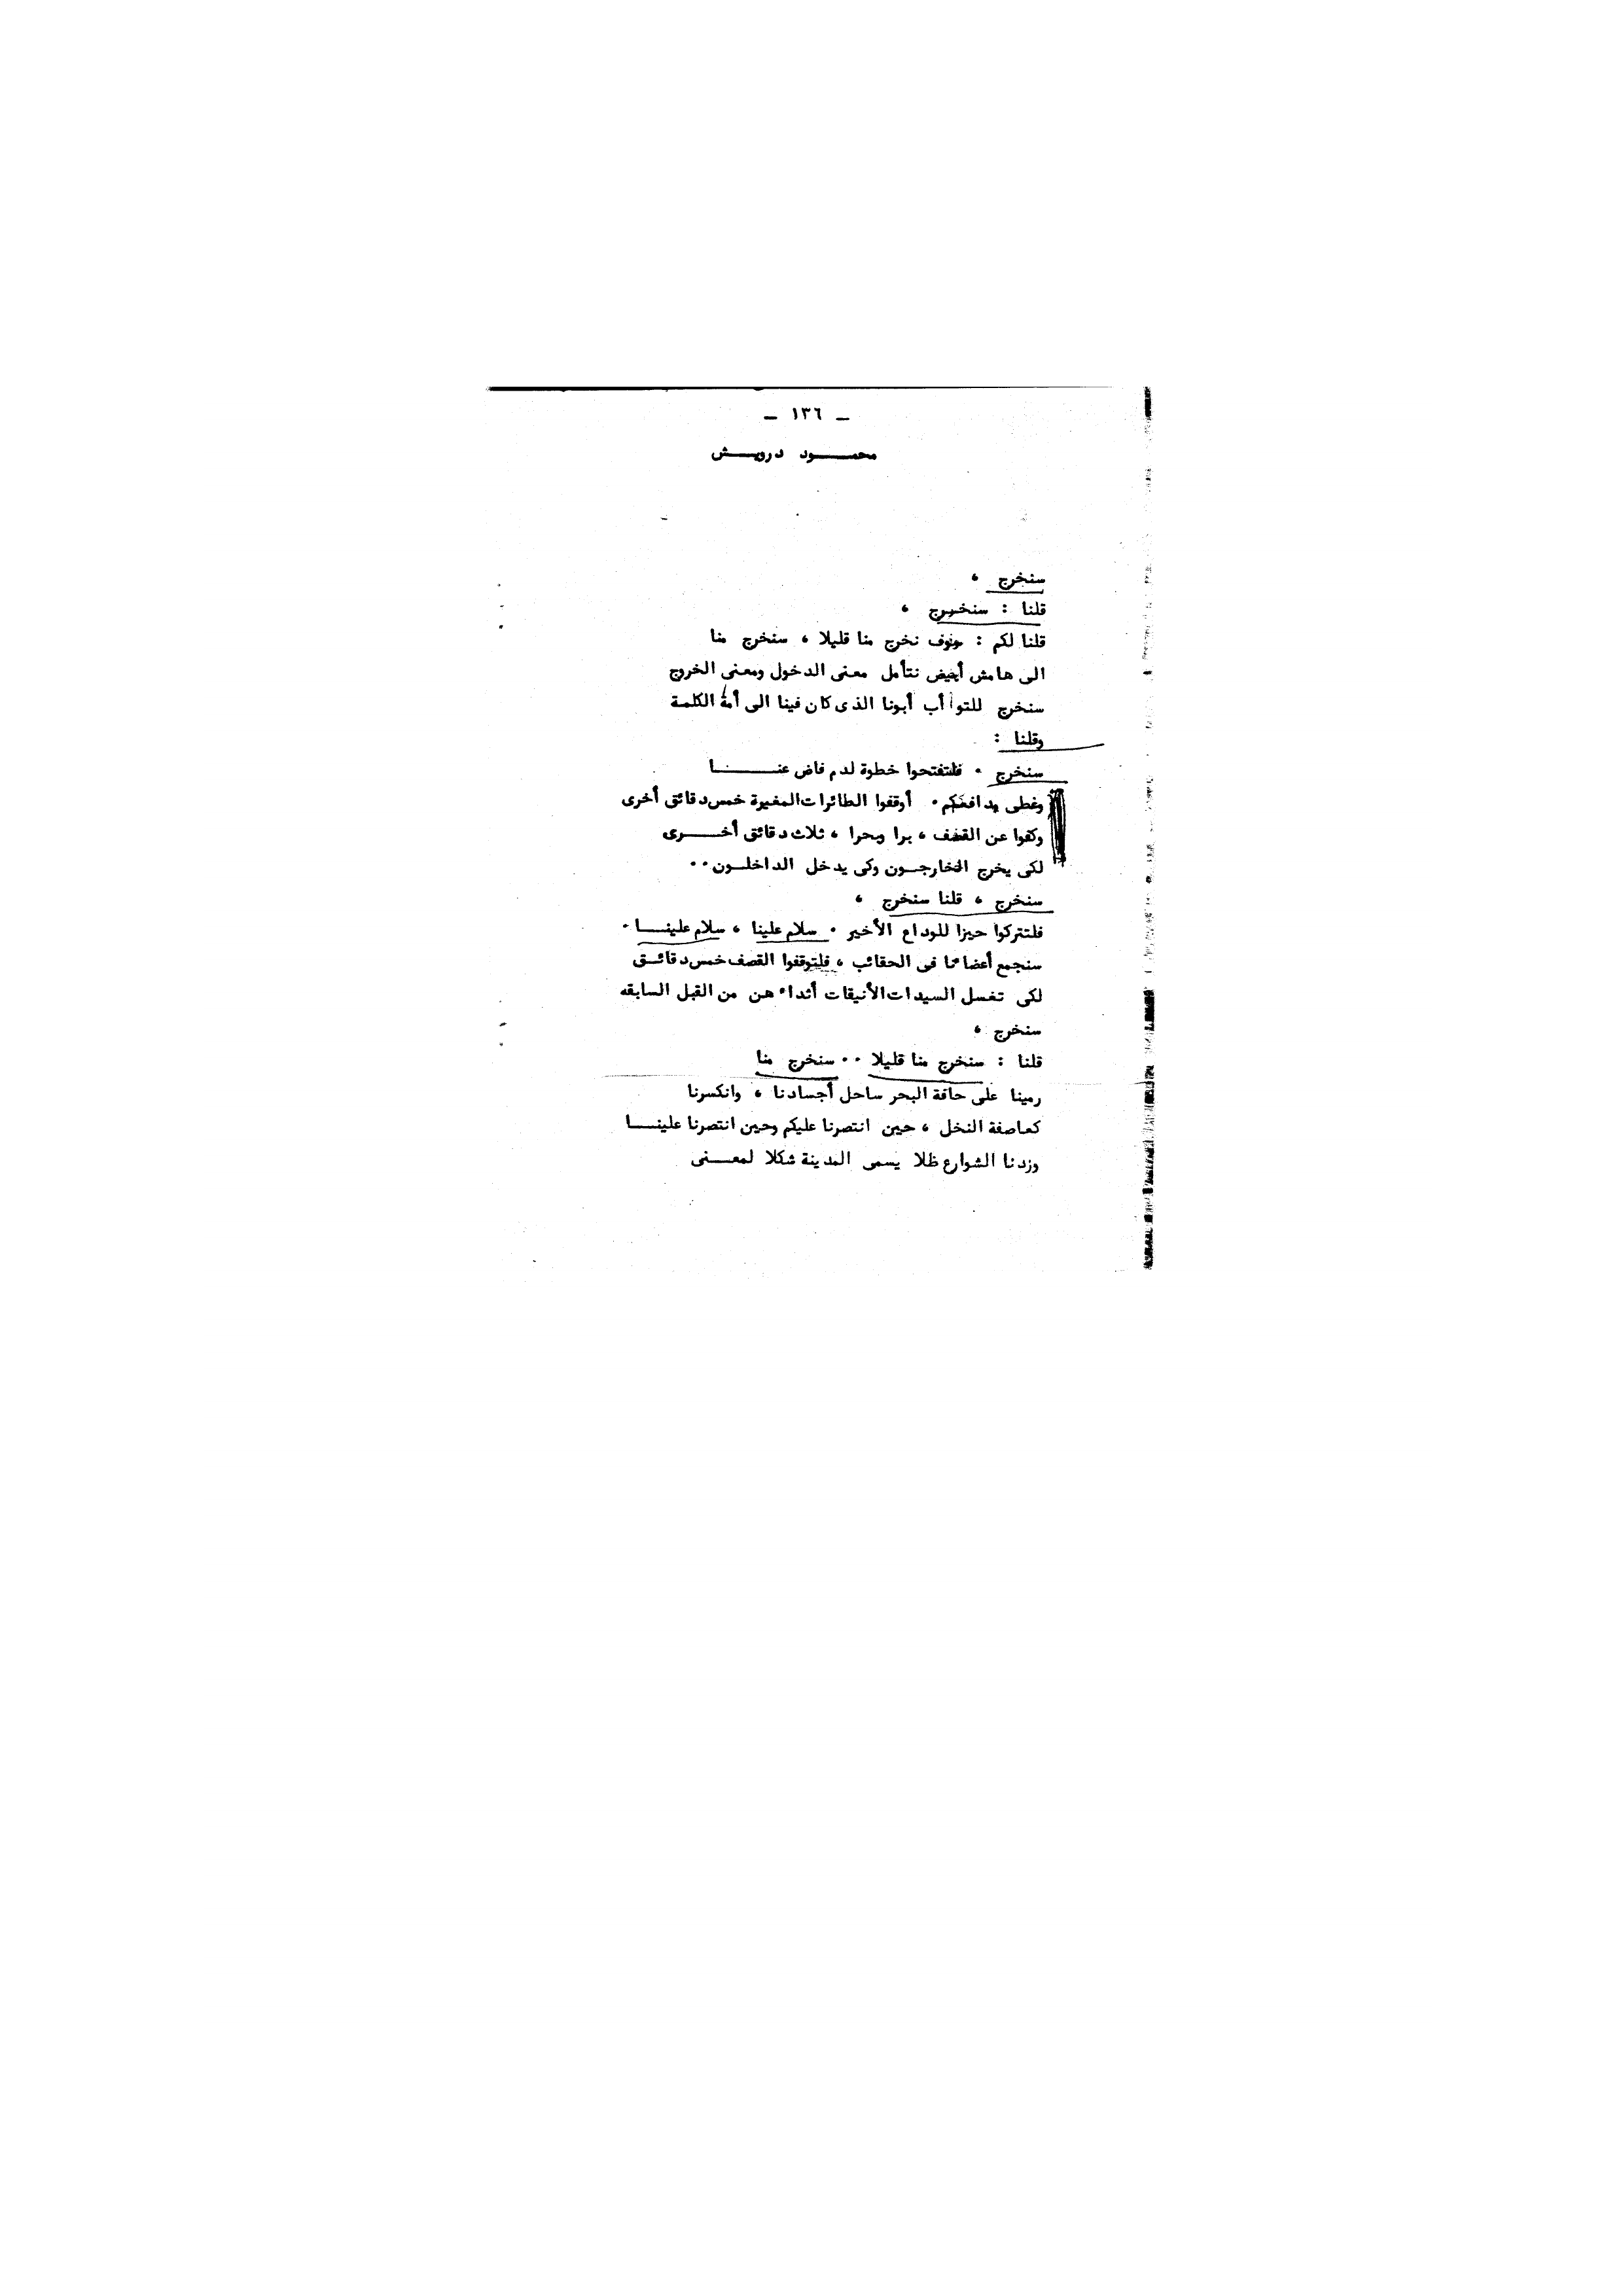 ـ ١٣٦ ـ
محمـــود درويـــش
سنخرج ،
قلنا : سنخرج ،
قلنا لكم : سوف نخرج منا قليلا ، سنخرج منا
الى هامش أبيض نتأمل معنى الدخول ومعنى الخروج
سنخرج للتو أب أبونا الذى كان فينا الى أمة الكلمة
وقلنا :
سنخرج . فلتفتحوا خطوة لدم فاض عنـــــا
وغطى مدافعكم . أوقفوا الطائرات المغيرة خمس دقائق أخرى
وكفوا عن القصف ، برا وبحرا ، ثلاث دقائق أخـــرى
لكى يخرج الخارجــون وكى يدخل الداخلــون . .
سنخرج ، قلنا سنخرج ،
فلتتركوا حيزا للوداع الأخير . سلام علينا ، سلام علينـــا .
سنجمع أعضائنا فى الحقائب ، فلتوقفوا القصف خمس دقائـق
لكى تغسل السيدات الأنيقات أثداءهن من القبل السابقه
سنخرج ،
قلنا : سنخرج منا قليلا . . سنخرج منا
رمينا على حافة البحر ساحل أجسادنا ، وانكسرنا
كعاصفة النخل ، حين انتصرنا عليكم وحين انتصرنا علينـــا
وزدنا الشوارع ظلا يسمى المدينة شكلا لمعـــنى